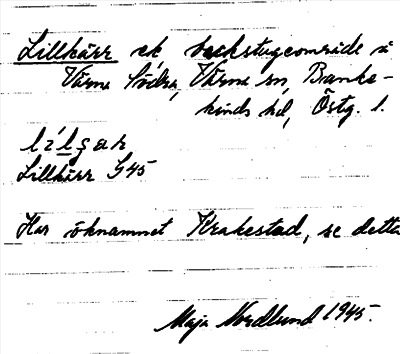 Lillkärr ck, backstugeområde å
Värna Södra, Värna sn, Banke-
kinds hd, Östg. l.
lìlçar
Lillkärr G45
Har öknamnet Krakestad, se detta
Maja Nordlund 1945.